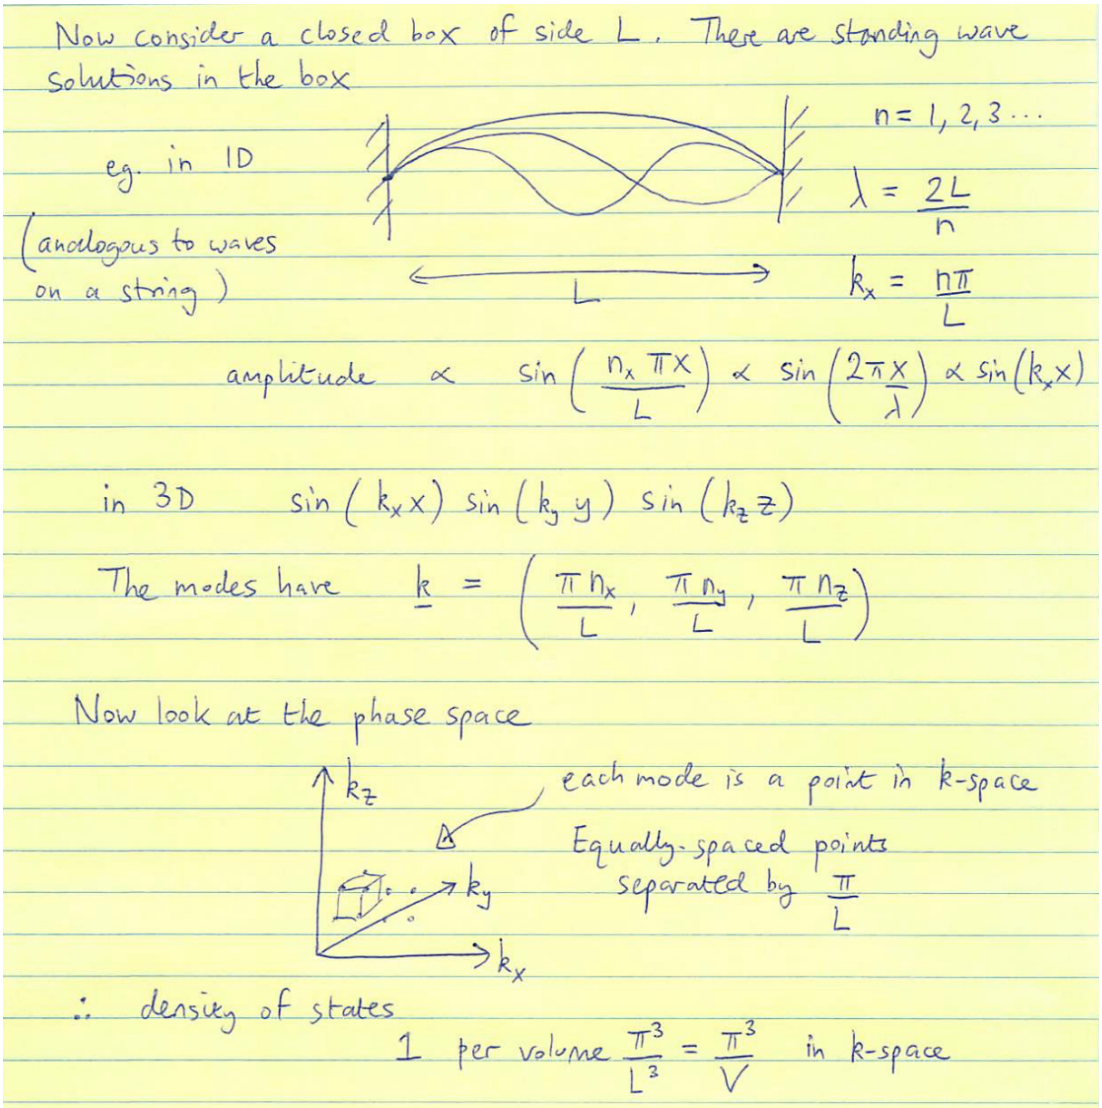 Now consider a closed box of side L. There are standing wave
solutions in the box
eg. in 1D
n = 1, 2, 3 ...
λ = 2L/n
(analogous to waves
on a string)
L
kₓ = nπ/L
amplitude ∝ sin(nₓπx/L) ∝ sin(2πx/λ) ∝ sin(kₓx)
in 3D sin(kₓx) sin(k_y y) sin(k_z z)
The modes have k = (πnₓ/L, πn_y/L, πn_z/L)
Now look at the phase space
k_z
each mode is a point in k-space
Equally-spaced points
separated by π/L
k_y
kₓ
∴ density of states
1 per volume π³/L³ = π³/V in k-space